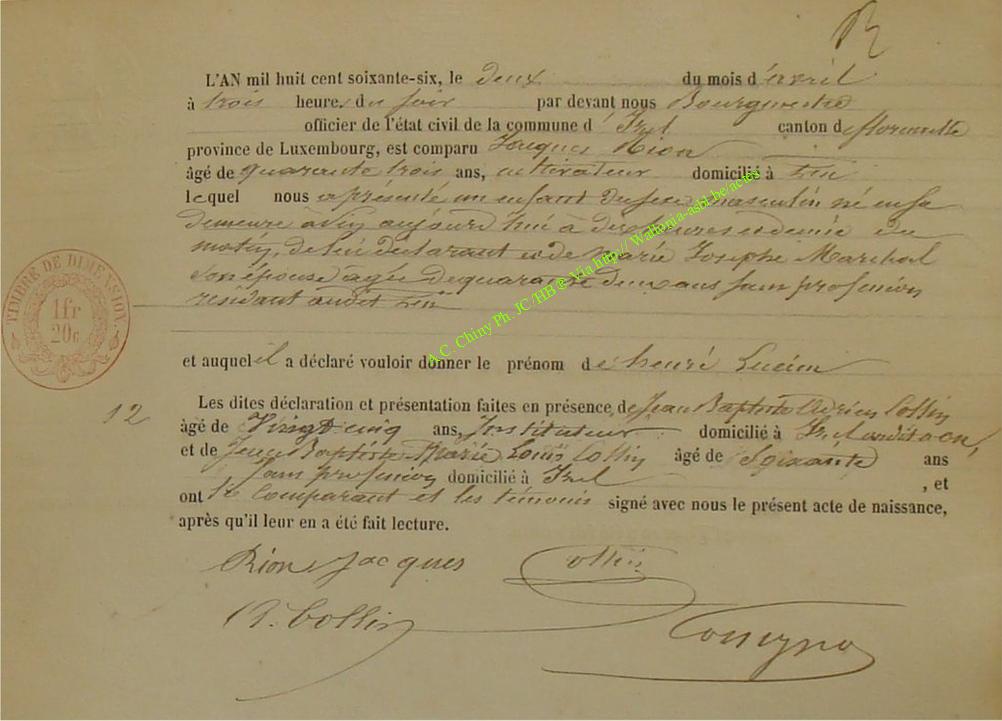 R
L'AN mil huit cent soixante-six, le deux du mois d'avril
à trois heure. du soir par devant nous Bourgmestre
officier de l'état civil de la commune d' Izel canton de florenville
province de Luxembourg, est comparu Jacques Rion
âgé de quarante trois ans, cultivateur domicilié à
lequel nous a présenté un enfant du sexe masculin né en sa
demeure à aujourd'hui à dix heures et demie du
matin, de lui déclarant et de Marie Josephe Maréchal
son épouse agée de quarante deux ans sans profession
résidant audit
TIMBRE DE DIMENSION.
1fr
20c
et auquel il a déclaré vouloir donner le prénom de henré Lucien
12
Les dites déclaration et présentation faites en présence de Jean Baptiste Adrien Collin
âgé de Vingt cinq ans, Instituteur domicilié à Izel
et de Jean Baptiste Marie Louis Collin âgé de Soixante ans
sans profession domicilié à Izel , et
ont le comparant et les témoins signé avec nous le présent acte de naissance,
après qu'il leur en a été fait lecture.
Rion Jacques Collin
A. Collin
A.C. Chiny Ph. JC/HB @ Via http// Wallonia-asbl.be/actes